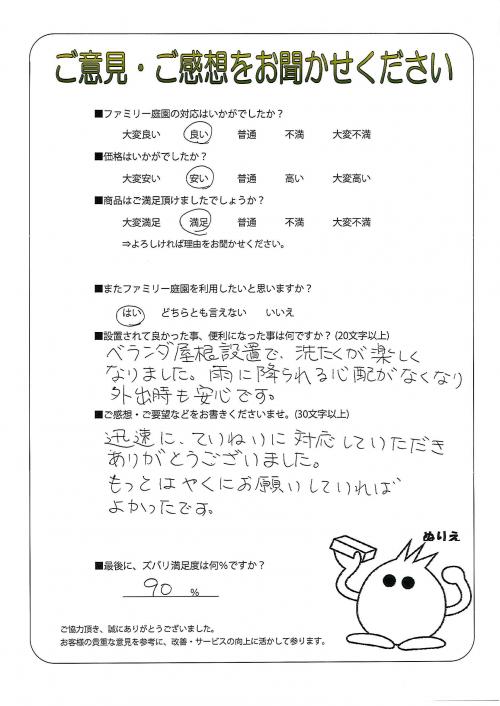 ご意見・ご感想をお聞かせください
■ファミリー庭園の対応はいかがでしたか？
大変良い 良い 普通 不満 大変不満
■価格はいかがでしたか？
大変安い 安い 普通 高い 大変高い
■商品はご満足頂けましたでしょうか？
大変満足 満足 普通 不満 大変不満
⇒よろしければ理由をお聞かせください。
■またファミリー庭園を利用したいと思いますか？
はい どちらとも言えない いいえ
■設置されて良かった事、便利になった事は何ですか？(20文字以上)
ベランダ屋根設置で、洗たくが楽しく
なりました。雨に降られる心配がなくなり
外出時も安心です。
■ご感想・ご要望などをお書きくださいませ。(30文字以上)
迅速に、ていねいに対応していただき
ありがとうございました。
もっとはやくにお願いしていれば
よかったです。
ぬりえ
■最後に、ズバリ満足度は何％ですか？
90 %
ご協力頂き、誠にありがとうございました。
お客様の貴重な意見を参考に、改善・サービスの向上に活かして参ります。